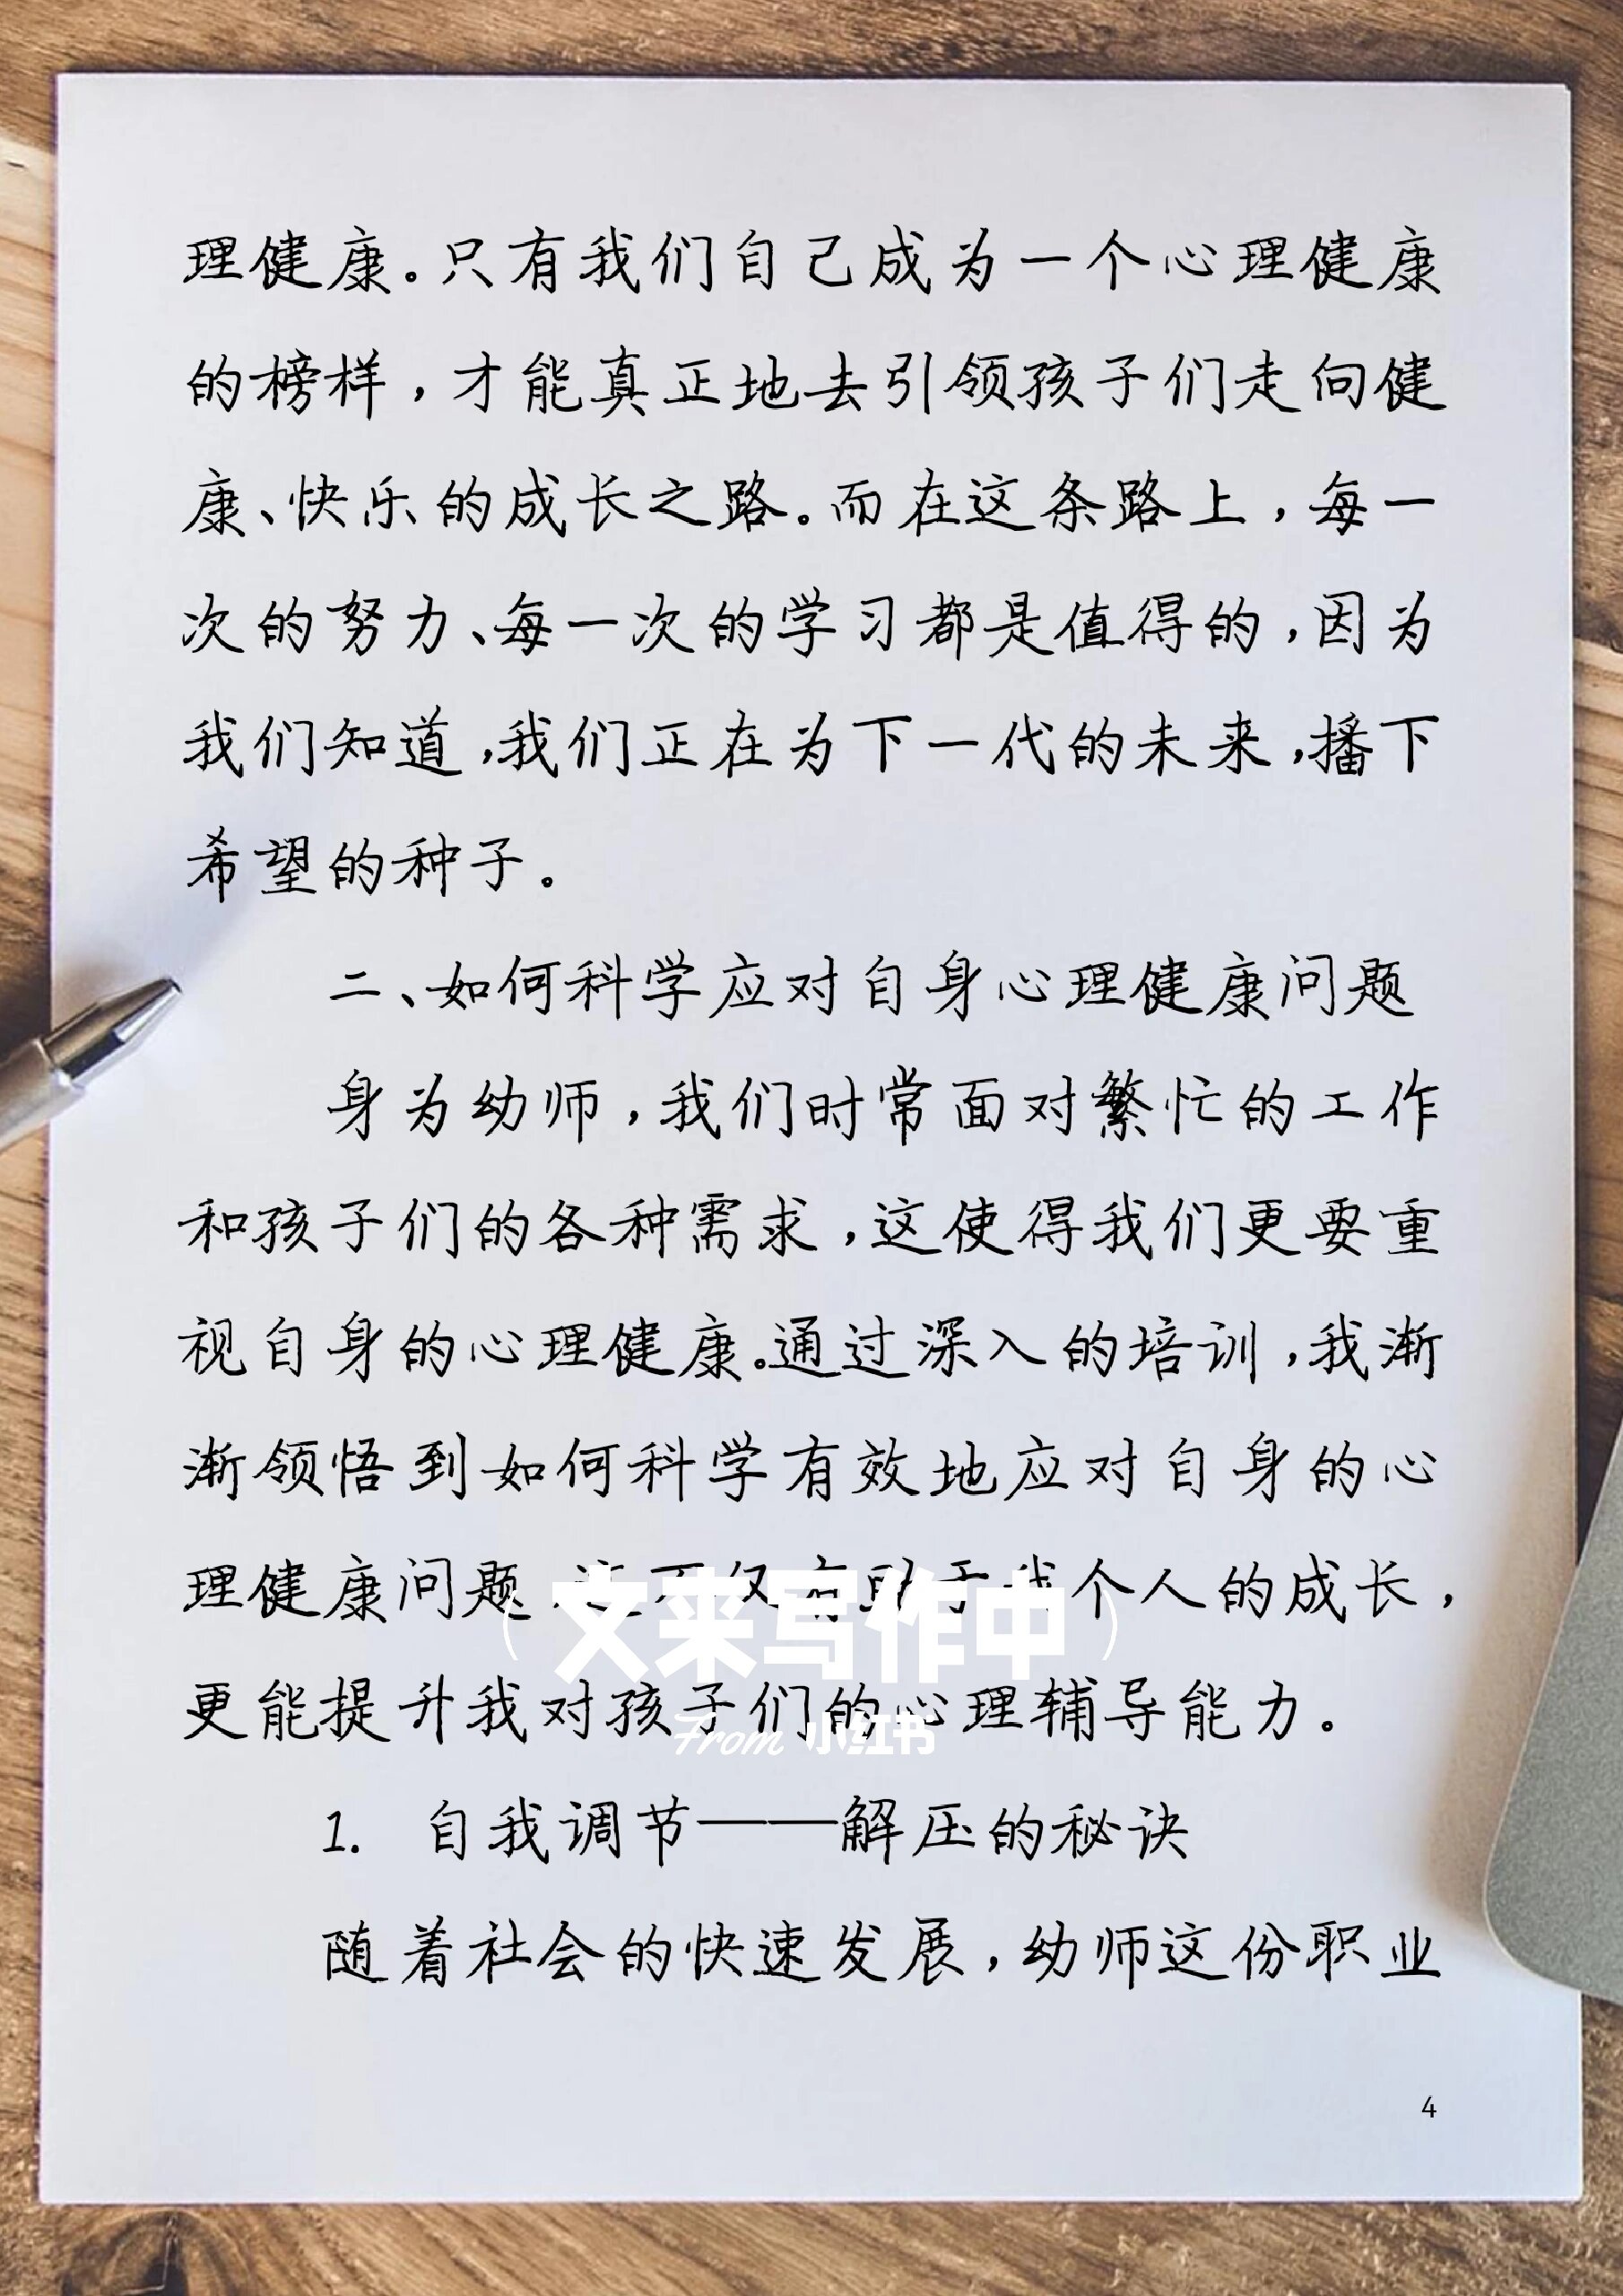 理健康。只有我们自己成为一个心理健康
的榜样，才能真正地去引领孩子们走向健
康、快乐的成长之路。而在这条路上，每一
次的努力、每一次的学习都是值得的，因为
我们知道，我们正在为下一代的未来，播下
希望的种子。
二、如何科学应对自身心理健康问题
身为幼师，我们时常面对繁忙的工作
和孩子们的各种需求，这使得我们更要重
视自身的心理健康。通过深入的培训，我渐
渐领悟到如何科学有效地应对自身的心
理健康问题，这不仅有助于我个人的成长，
（文来写作中）
更能提升我对孩子们的心理辅导能力。
From 小红书
1. 自我调节——解压的秘诀
随着社会的快速发展，幼师这份职业
4